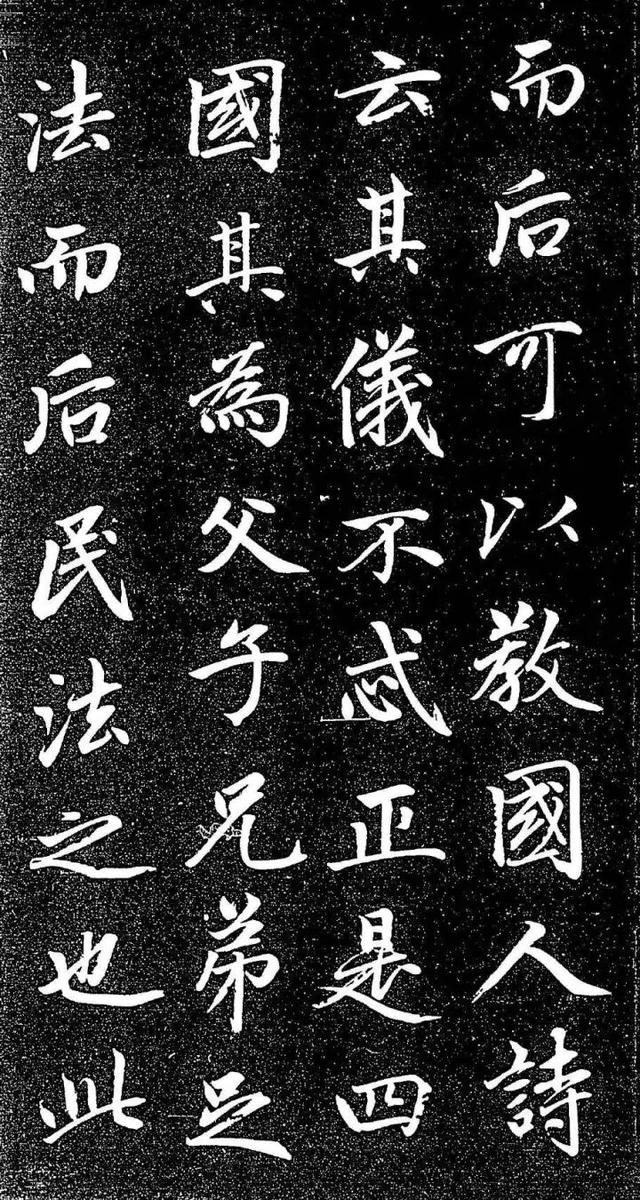 而后可以教國人詩
云其儀不忒正是四
國其為父子兄弟足
法而后民法之也此